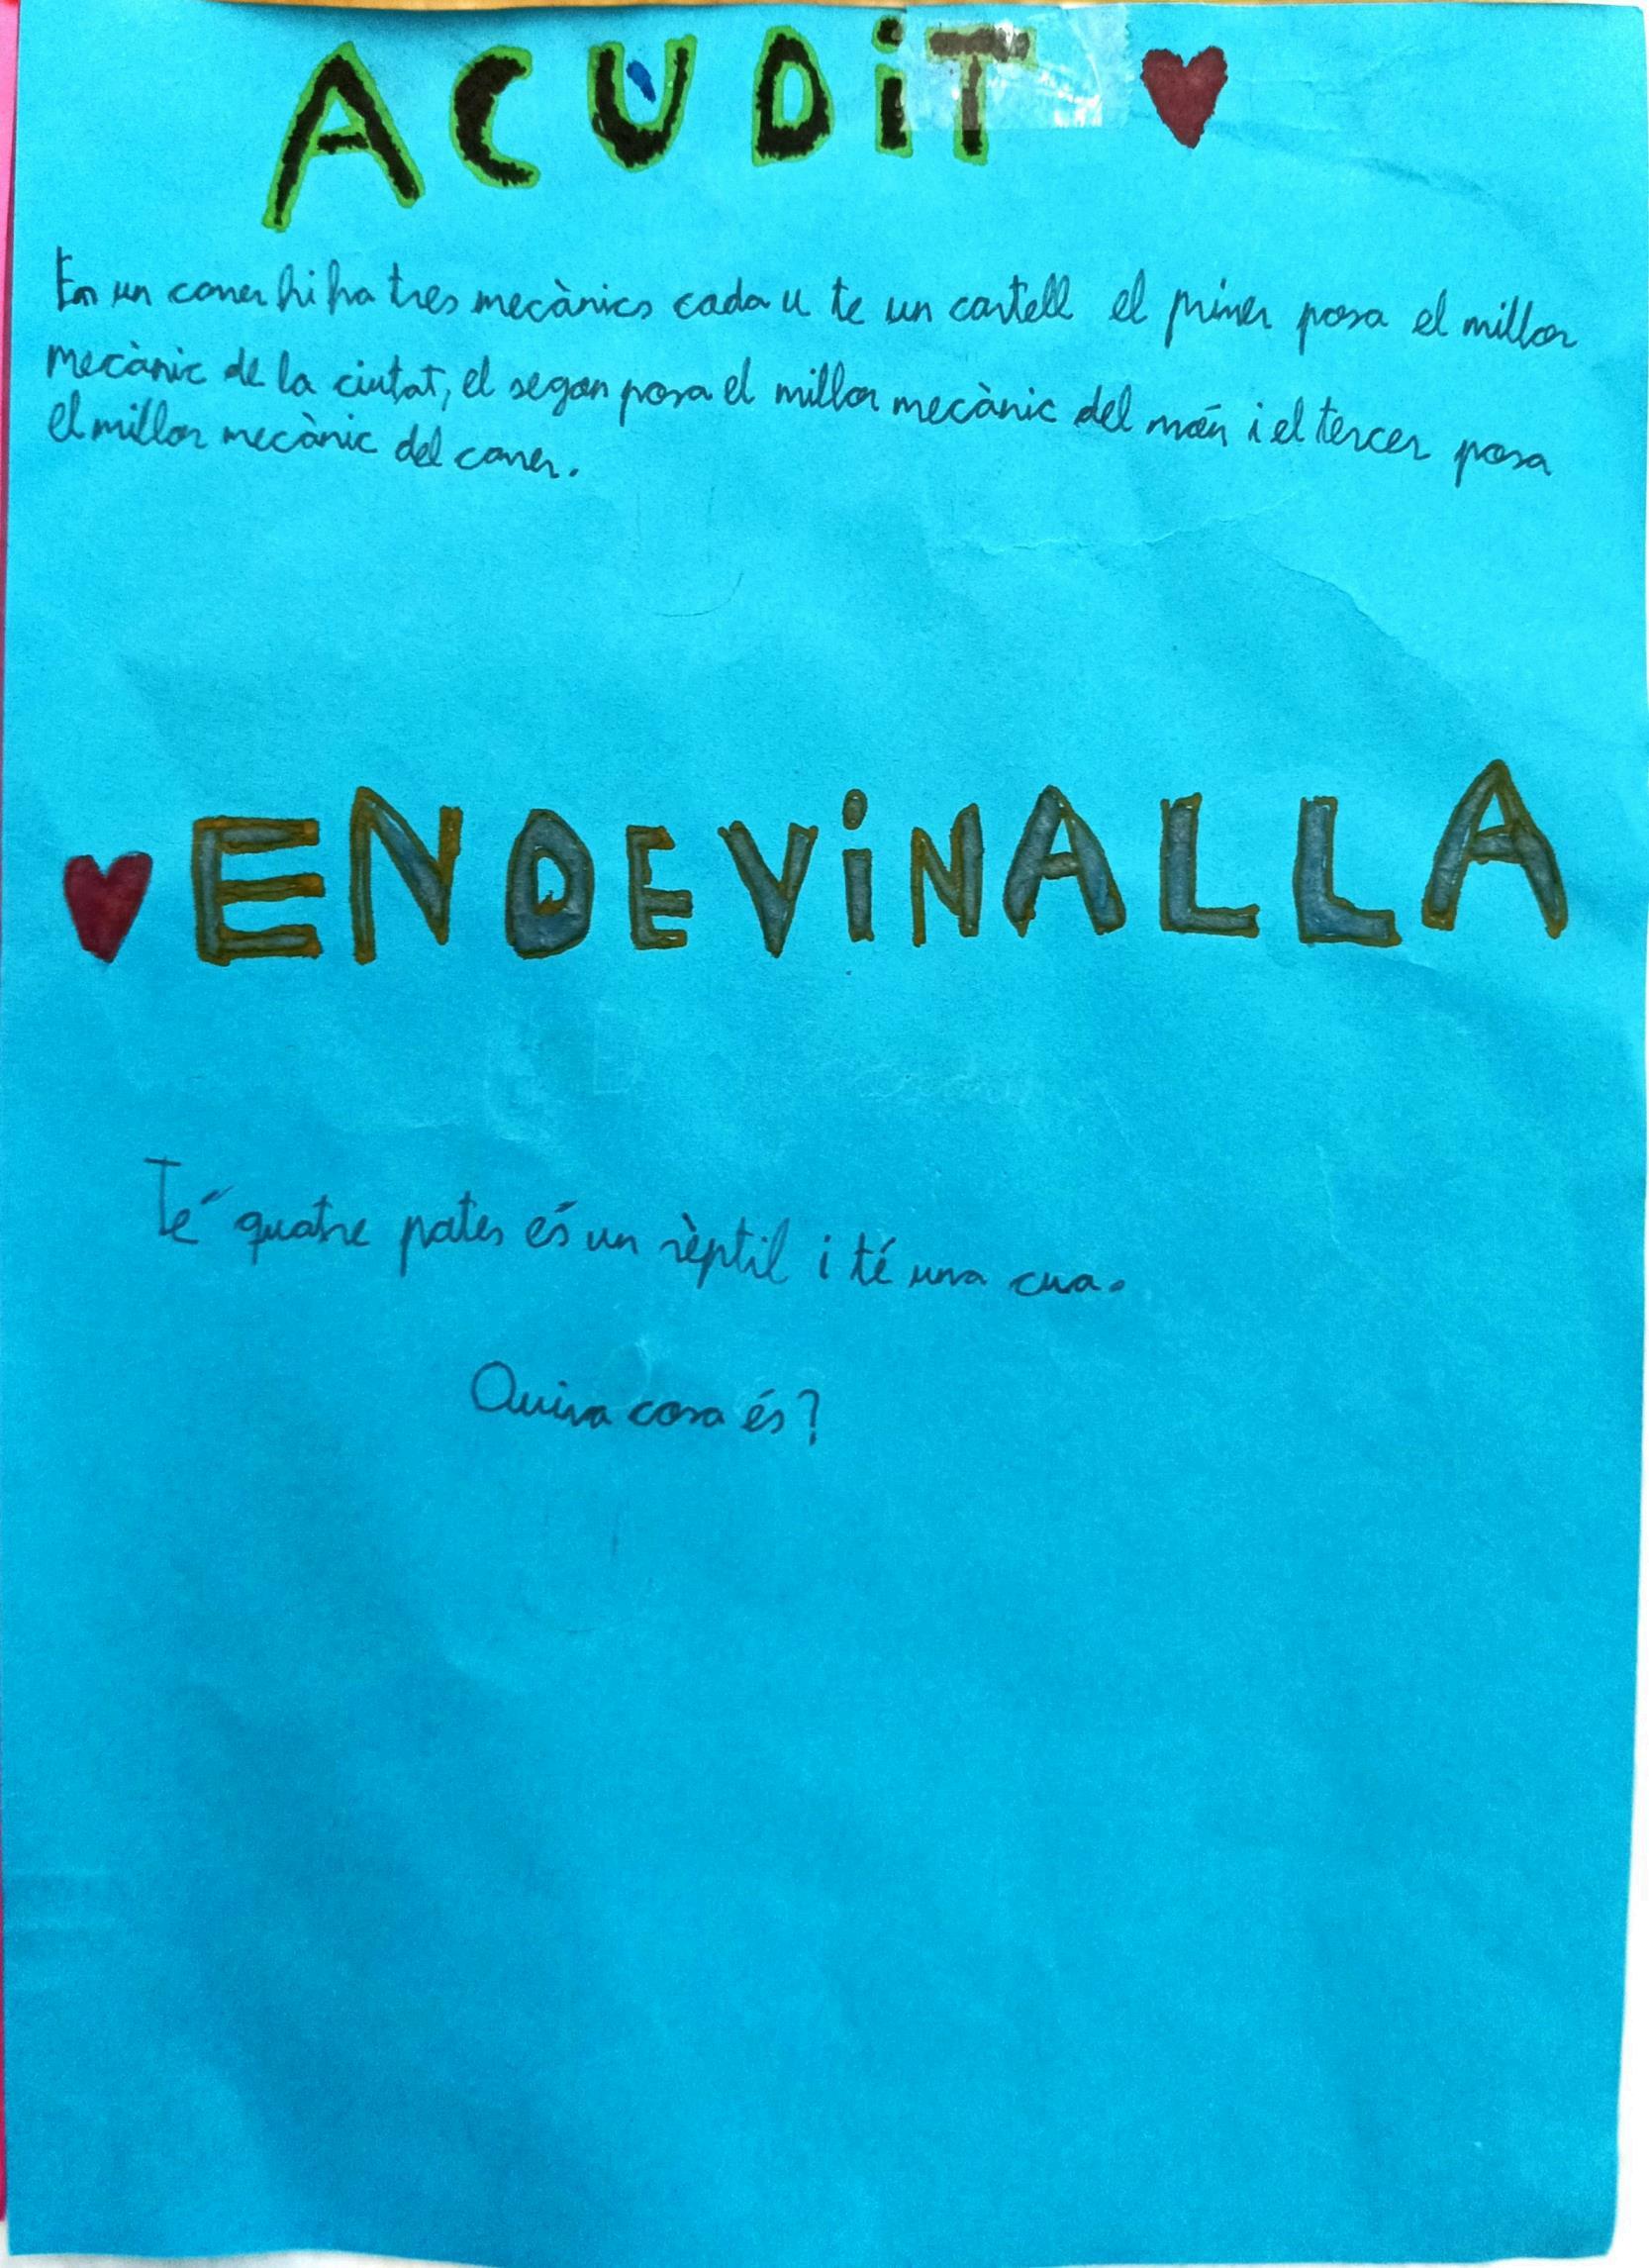 ACUDiT
En un carrer hi ha tres mecànics cada u te un cartell el primer posa el millor
mecànic de la ciutat, el segon posa el millor mecànic del món i el tercer posa
el millor mecànic del carrer.
ENDEViNALLA
Té quatre pates és un rèptil i té una cua.
Quina cosa és?